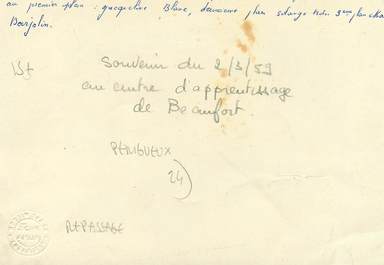 au premier plan : Jacqueline Blanc, deuxième plan Solange 3ème plan
Barjolin.
1St
Souvenir du 2/3/59
au centre d'apprentissage
de Beaufort.
PERIGUEUX
24)
REPASSAGE